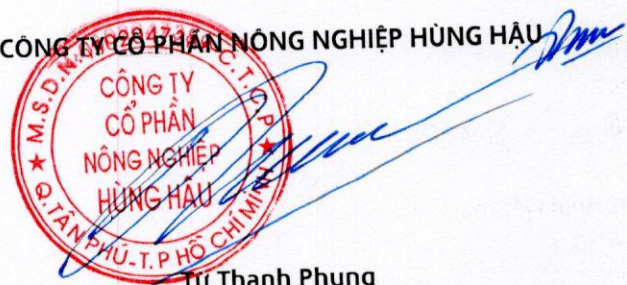 CÔNG TY CỔ PHẦN NÔNG NGHIỆP HÙNG HẬU
M.S.D.N: C.T.C.P
CÔNG TY
CỔ PHẦN
NÔNG NGHIỆP
HÙNG HẬU
Q.TÂN PHÚ-T.P HỒ CHÍ MINH
Từ Thanh Phụng